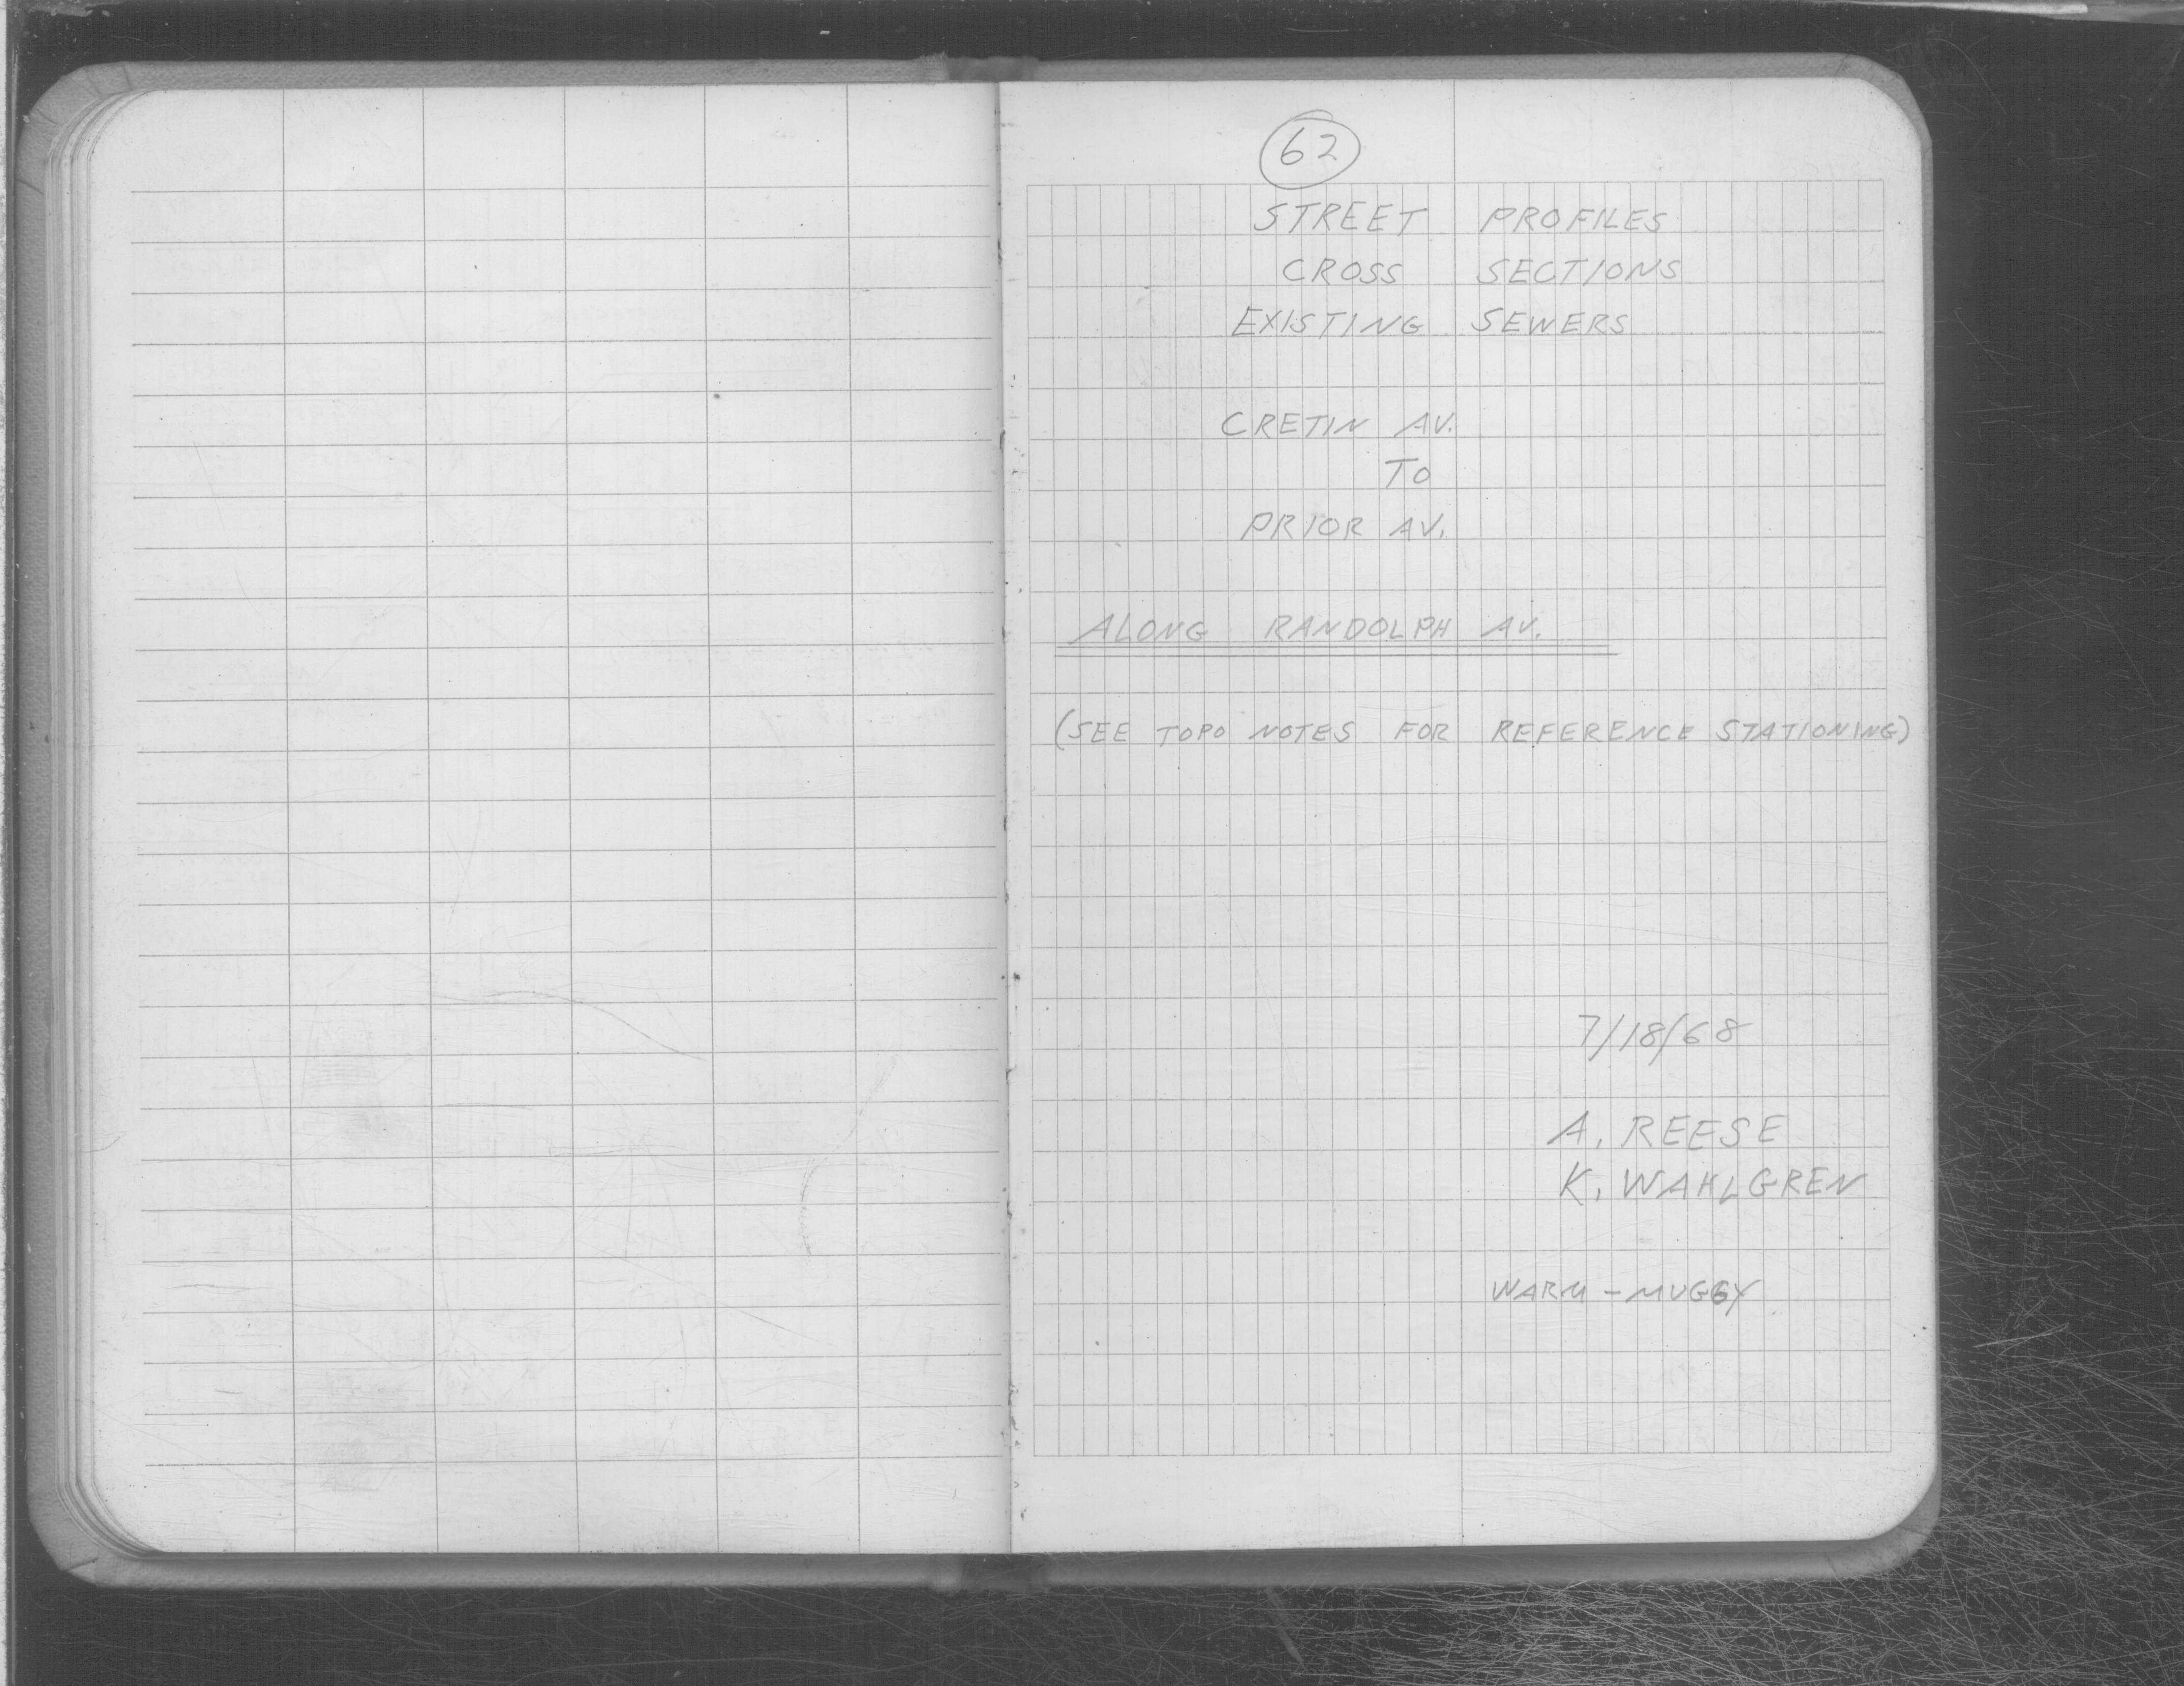 62
STREET PROFILES
CROSS SECTIONS
EXISTING SEWERS
CRETIN AV.
TO
PRIOR AV.
ALONG RANDOLPH AV.
(SEE TOPO NOTES FOR REFERENCE STATIONING)
7/18/68
A. REESE
K. WAHLGREN
WARM - MUGGY